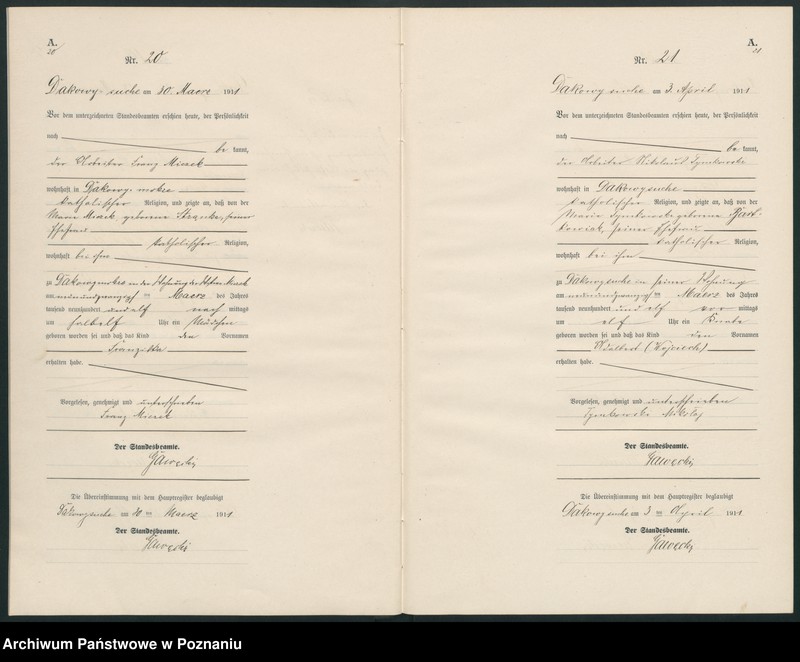 A.
20
Nr. 20
Dakowy-suche am 30. Maerz 1911
Vor dem unterzeichneten Standesbeamten erschien heute, der Persönlichkeit
nach
be kannt,
der Arbeiter Franz Mierek
wohnhaft in Dakowy-mokre
katholischer Religion, und zeigte an, daß von der
Marie Mierek, geborene seiner
Ehefrau
katholischer Religion,
wohnhaft bei ihm
zu Dakowymokre in der Wohnung des Franz Mierek
am neunundzwanzigsten Maerz des Jahres
tausend neunhundert und elf nach mittags
um halb elf Uhr ein Mädchen
geboren worden sei und daß das Kind den Vornamen
Franziska
erhalten habe.
Vorgelesen, genehmigt und unterschrieben
Franz Mierek
Der Standesbeamte.
Gawecki
Die Übereinstimmung mit dem Hauptregister beglaubigt
Dakowysuche am 30 ten Maerz 1911
Der Standesbeamte.
Gawecki
A.
21
Nr. 21
Dakowy suche am 3. April 1911
Vor dem unterzeichneten Standesbeamten erschien heute, der Persönlichkeit
nach
be kannt,
der Arbeiter Nikolaus
wohnhaft in Dakowysuche
katholischer Religion, und zeigte an, daß von der
Maria geborene
seiner Ehefrau
katholischer Religion,
wohnhaft bei ihm
zu Dakowysuche in seiner Wohnung
am neunundzwanzigsten Maerz des Jahres
tausend neunhundert und elf vor mittags
um elf Uhr ein Knabe
geboren worden sei und daß das Kind den Vornamen
Adalbert (Wojciech)
erhalten habe.
Vorgelesen, genehmigt und unterschrieben
Mikołaj
Der Standesbeamte.
Gawecki
Die Übereinstimmung mit dem Hauptregister beglaubigt
Dakowy suche am 3 ten April 1911
Der Standesbeamte.
Gawecki
Archiwum Państwowe w Poznaniu